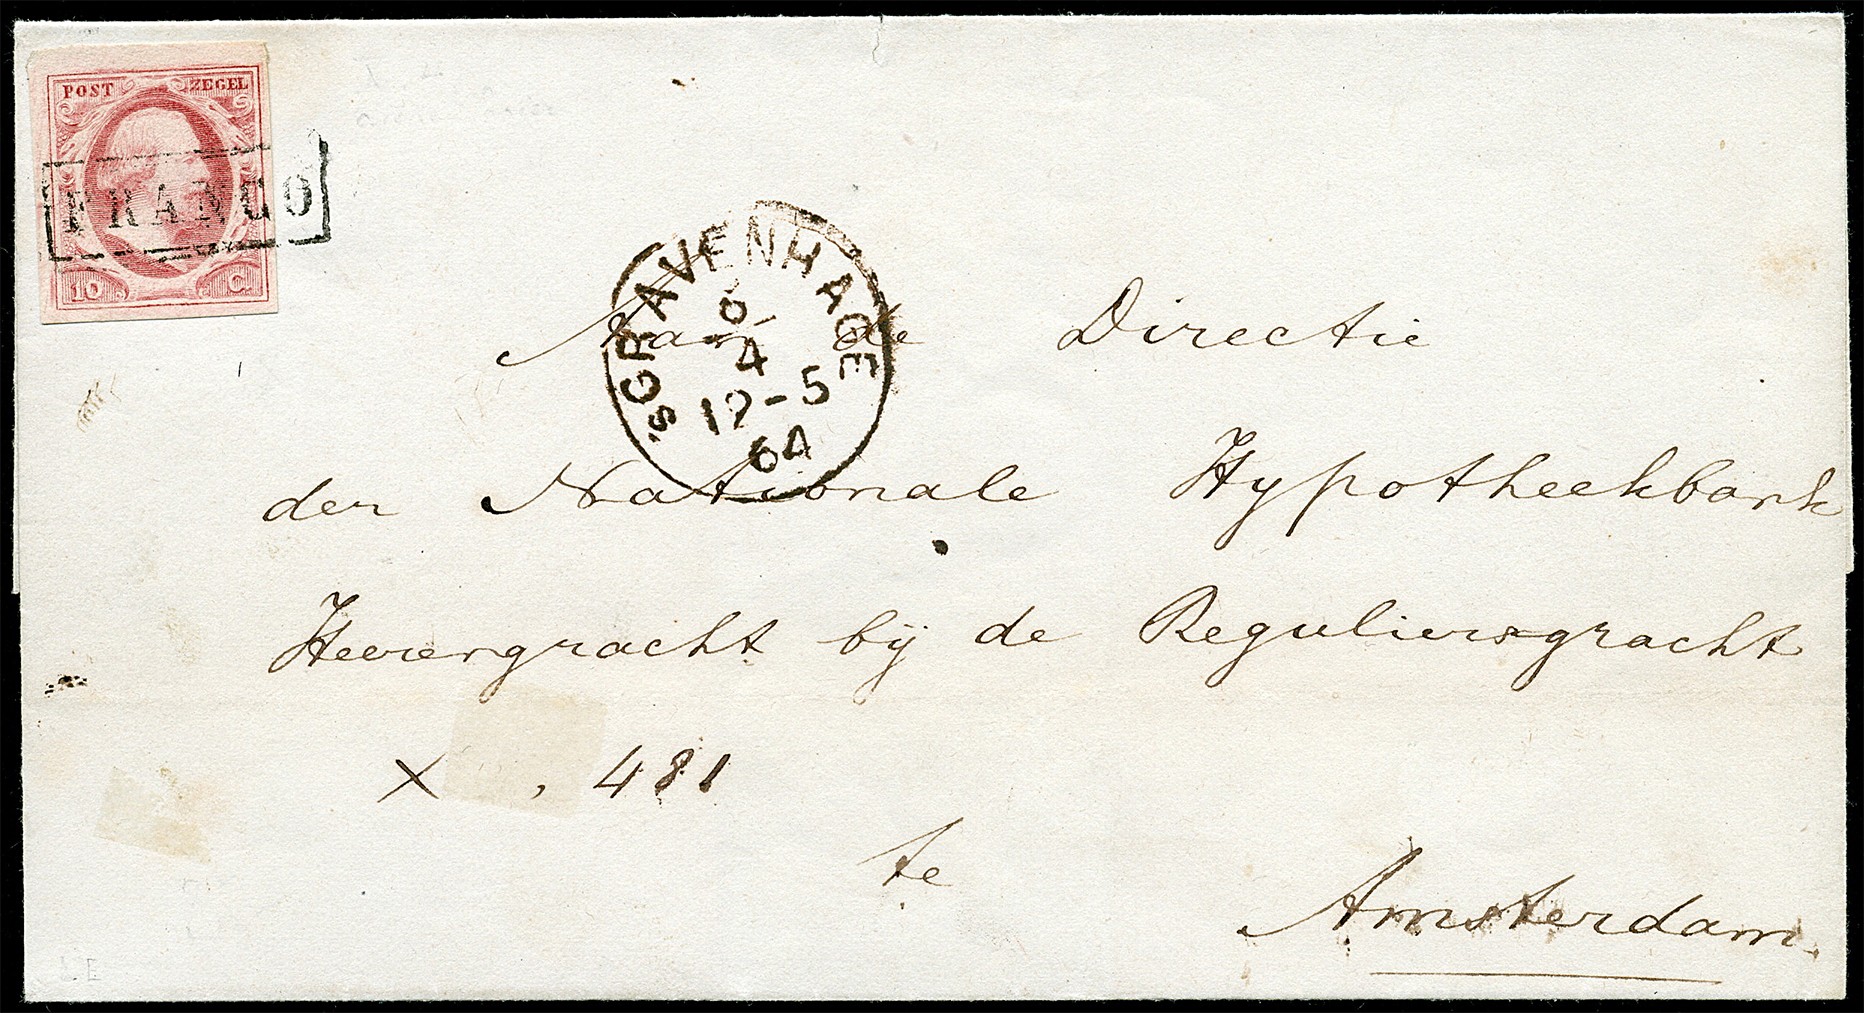 POST ZEGEL
FRANCO
10 C.
'sGRAVENHAGE
6
4
12-5
64
Aan de Directie
der Nationale Hypotheekbank
Heerengracht bij de Reguliersgracht
X , 481
te
Amsterdam.